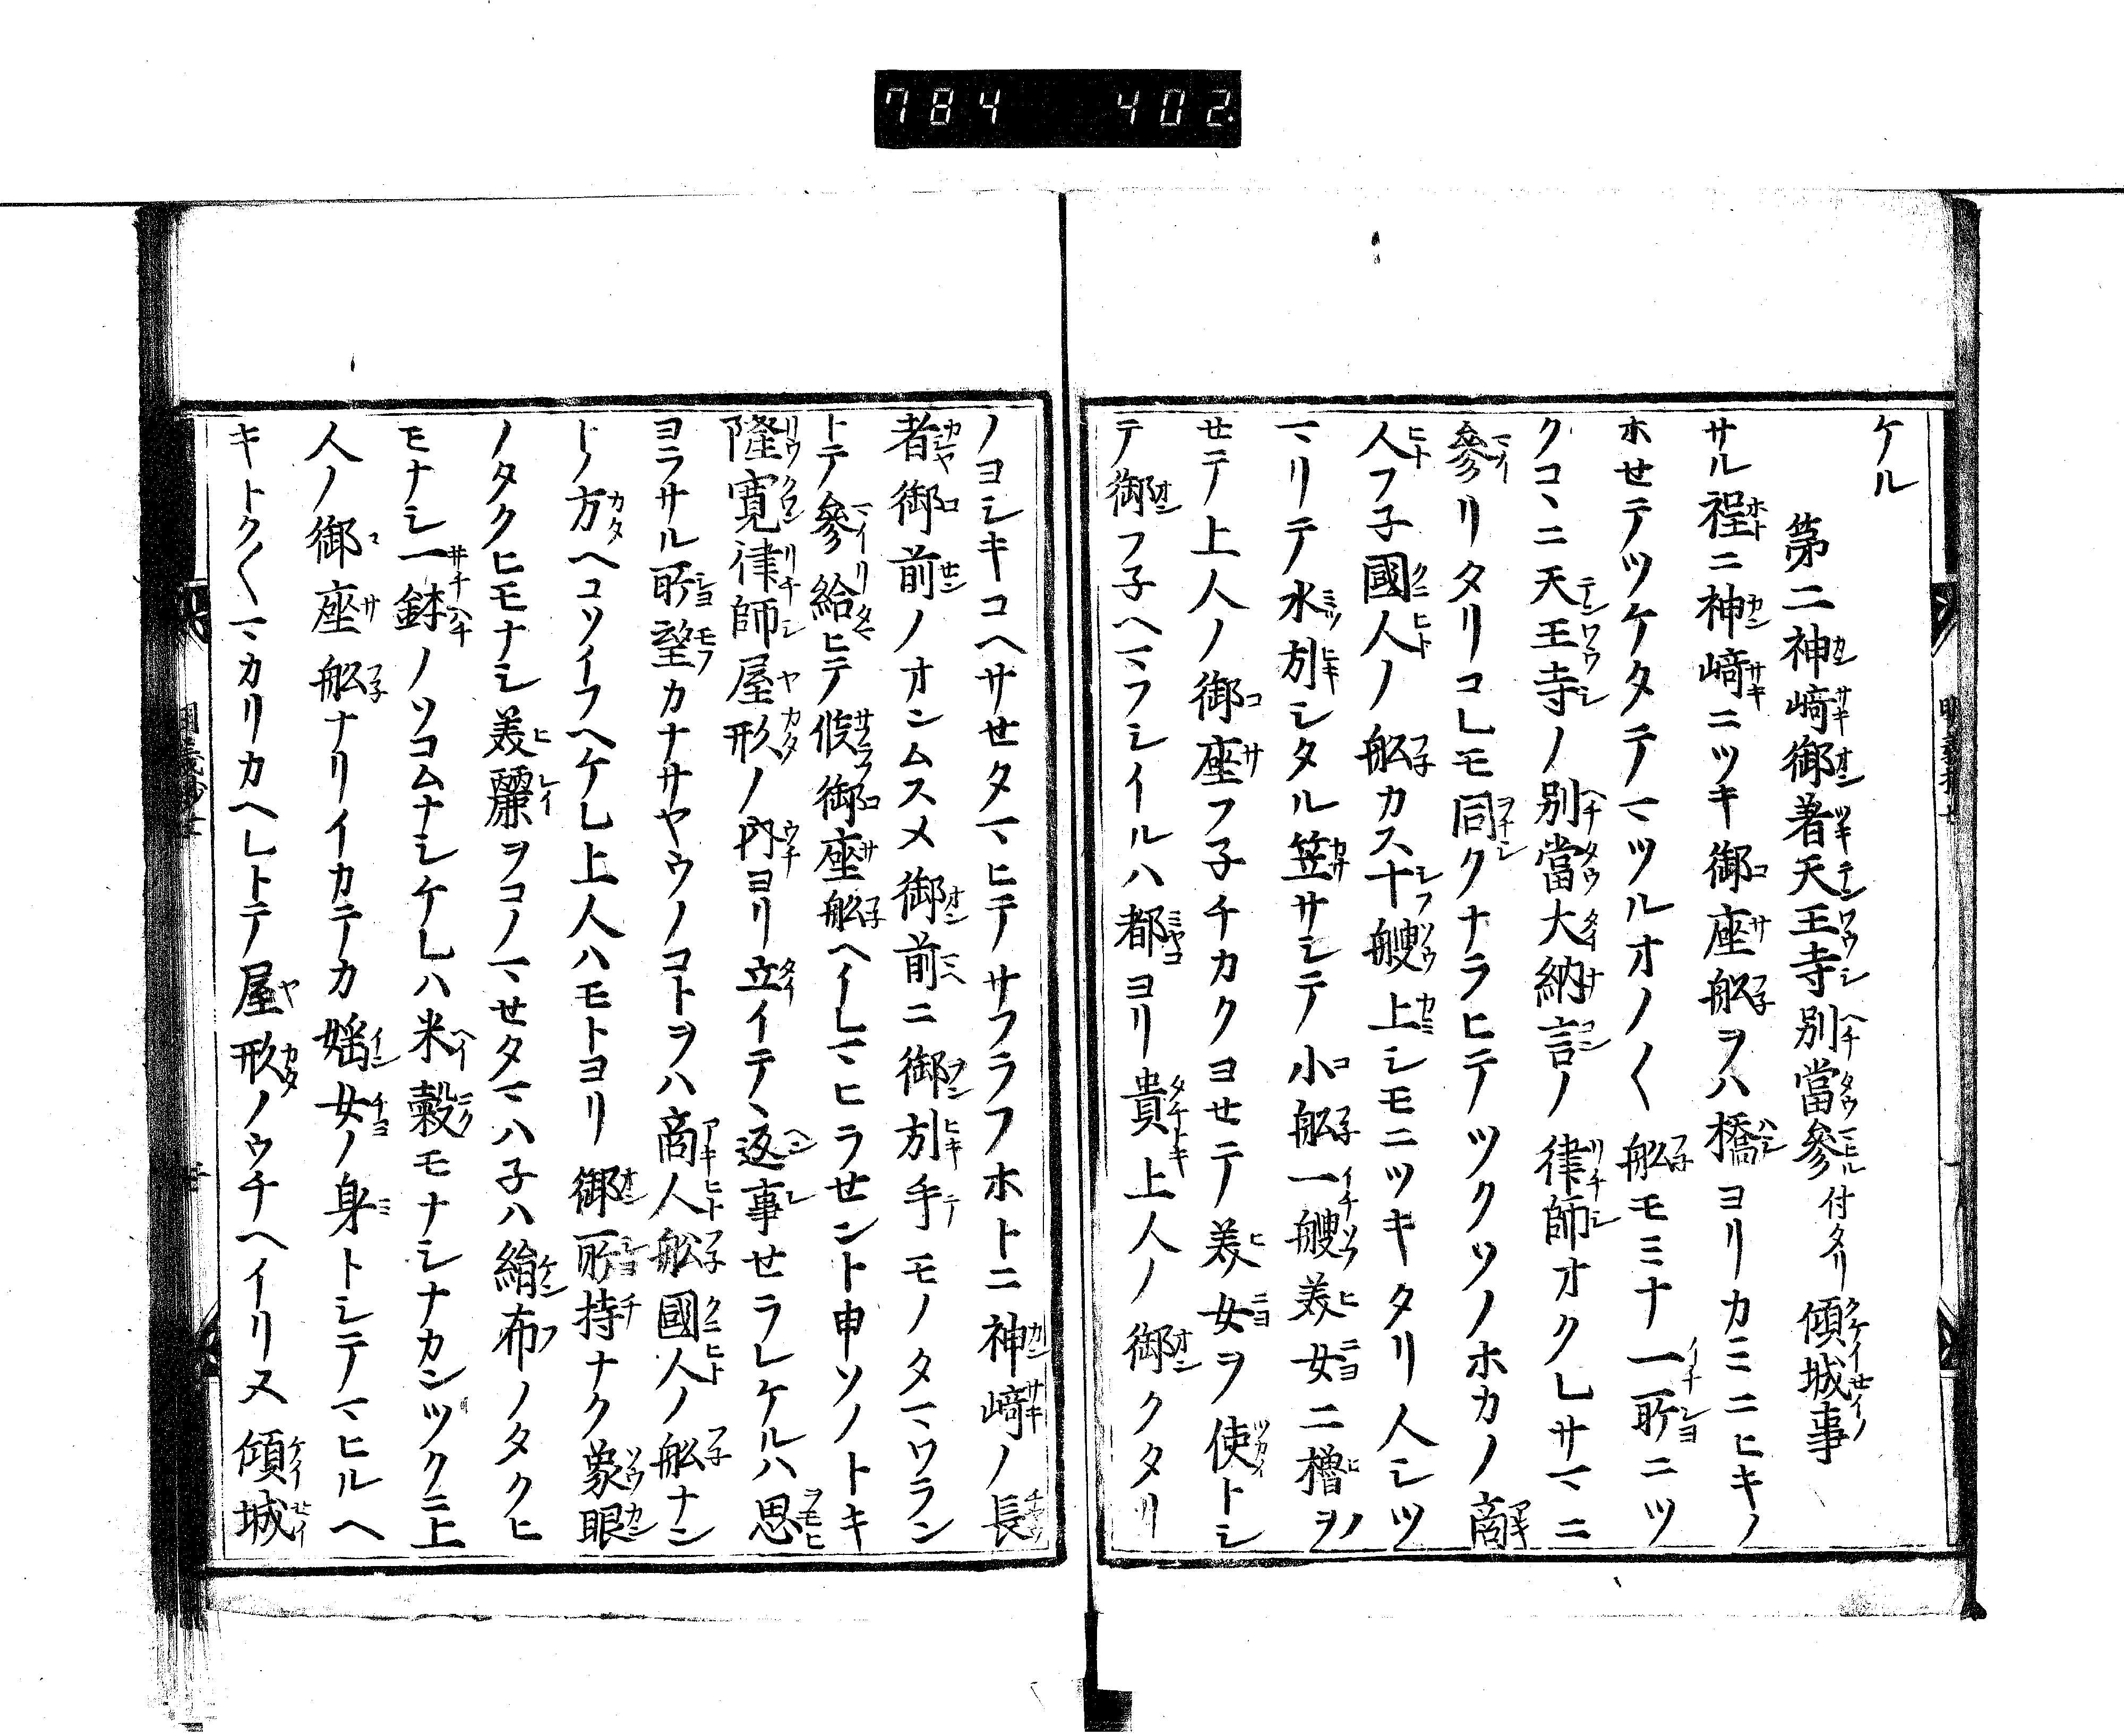 784 402.
ケル
第二神﨑御著天王寺別當參付タリ傾城事
サル程ニ神﨑ニツキ御座舩ヲハ橋ヨリカミニヒキノ
ホセテツケタテマツルオノ〱舩モミナ一所ニツ
クコヽニ天王寺ノ別當大納言ノ律師オクレサマニ
參リタリコレモ同クナラヒテツクソノホカノ商
人フ子國人ノ舩カス十艘上シモニツキタリ人シツ
マリテ水引シタル笠サシテ小舩一艘美女二櫓ヲ
せテ上人ノ御座フ子チカクヨせテ美女ヲ使トシ
テ御フ子ヘマフシイルハ都ヨリ貴上人ノ御クタリ
ノヨシキコヘサせタマヒテサフラフホトニ神﨑ノ長
者御前ノオンムスメ御前ニ御引手モノタマワラン
トテ參給ヒテ候御座舩ヘイレマヒラせント申ソノトキ
隆寛律師屋形ノ內ヨリ立イテヽ返事せラレケルハ思
ヨラサル所望カナサヤウノコトヲハ商人舩國人ノ舩ナン
トノ方ヘコソイフヘケレ上人ハモトヨリ御所持ナク象眼
ノタクヒモナシ美麗ヲコノマせタマハ子ハ絹布ノタクヒ
モナシ一鉢ノソコムナシケレハ米穀モナシナカンツクニ上
人ノ御座舩ナリイカテカ婬女ノ身トシテマヒルヘ
キトク〱マカリカヘレトテ屋形ノウチヘイリヌ傾城